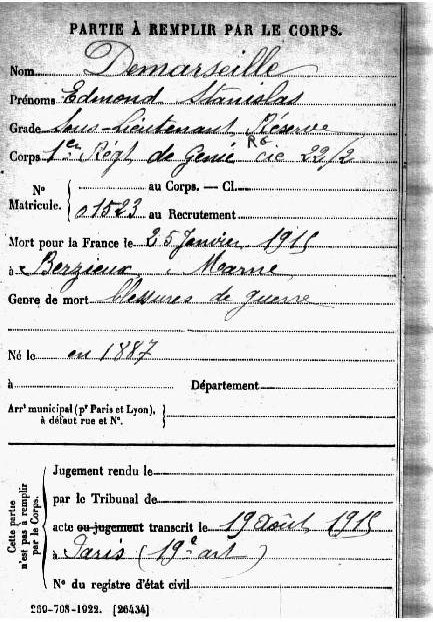 PARTIE À REMPLIR PAR LE CORPS.
Nom Demarseille
Prénoms Edmond Stanislas
Grade Sous-Lieutenant Réserve
Corps 1er Régt de Génie Cie 22/2
N° Matricule. { au Corps. — Cl.
01523 au Recrutement
Mort pour la France le 25 Janvier 1915
à Berzieux, Marne
Genre de mort blessures de guerre
Né le en 1887
à Département
Arrt municipal (pr Paris et Lyon), à défaut rue et N°.
Cette partie n'est pas à remplir par le Corps.
Jugement rendu le
par le Tribunal de
acte ou jugement transcrit le 19 Août 1915
à Paris (19e art)
N° du registre d'état civil
269-708-1922. [26434]